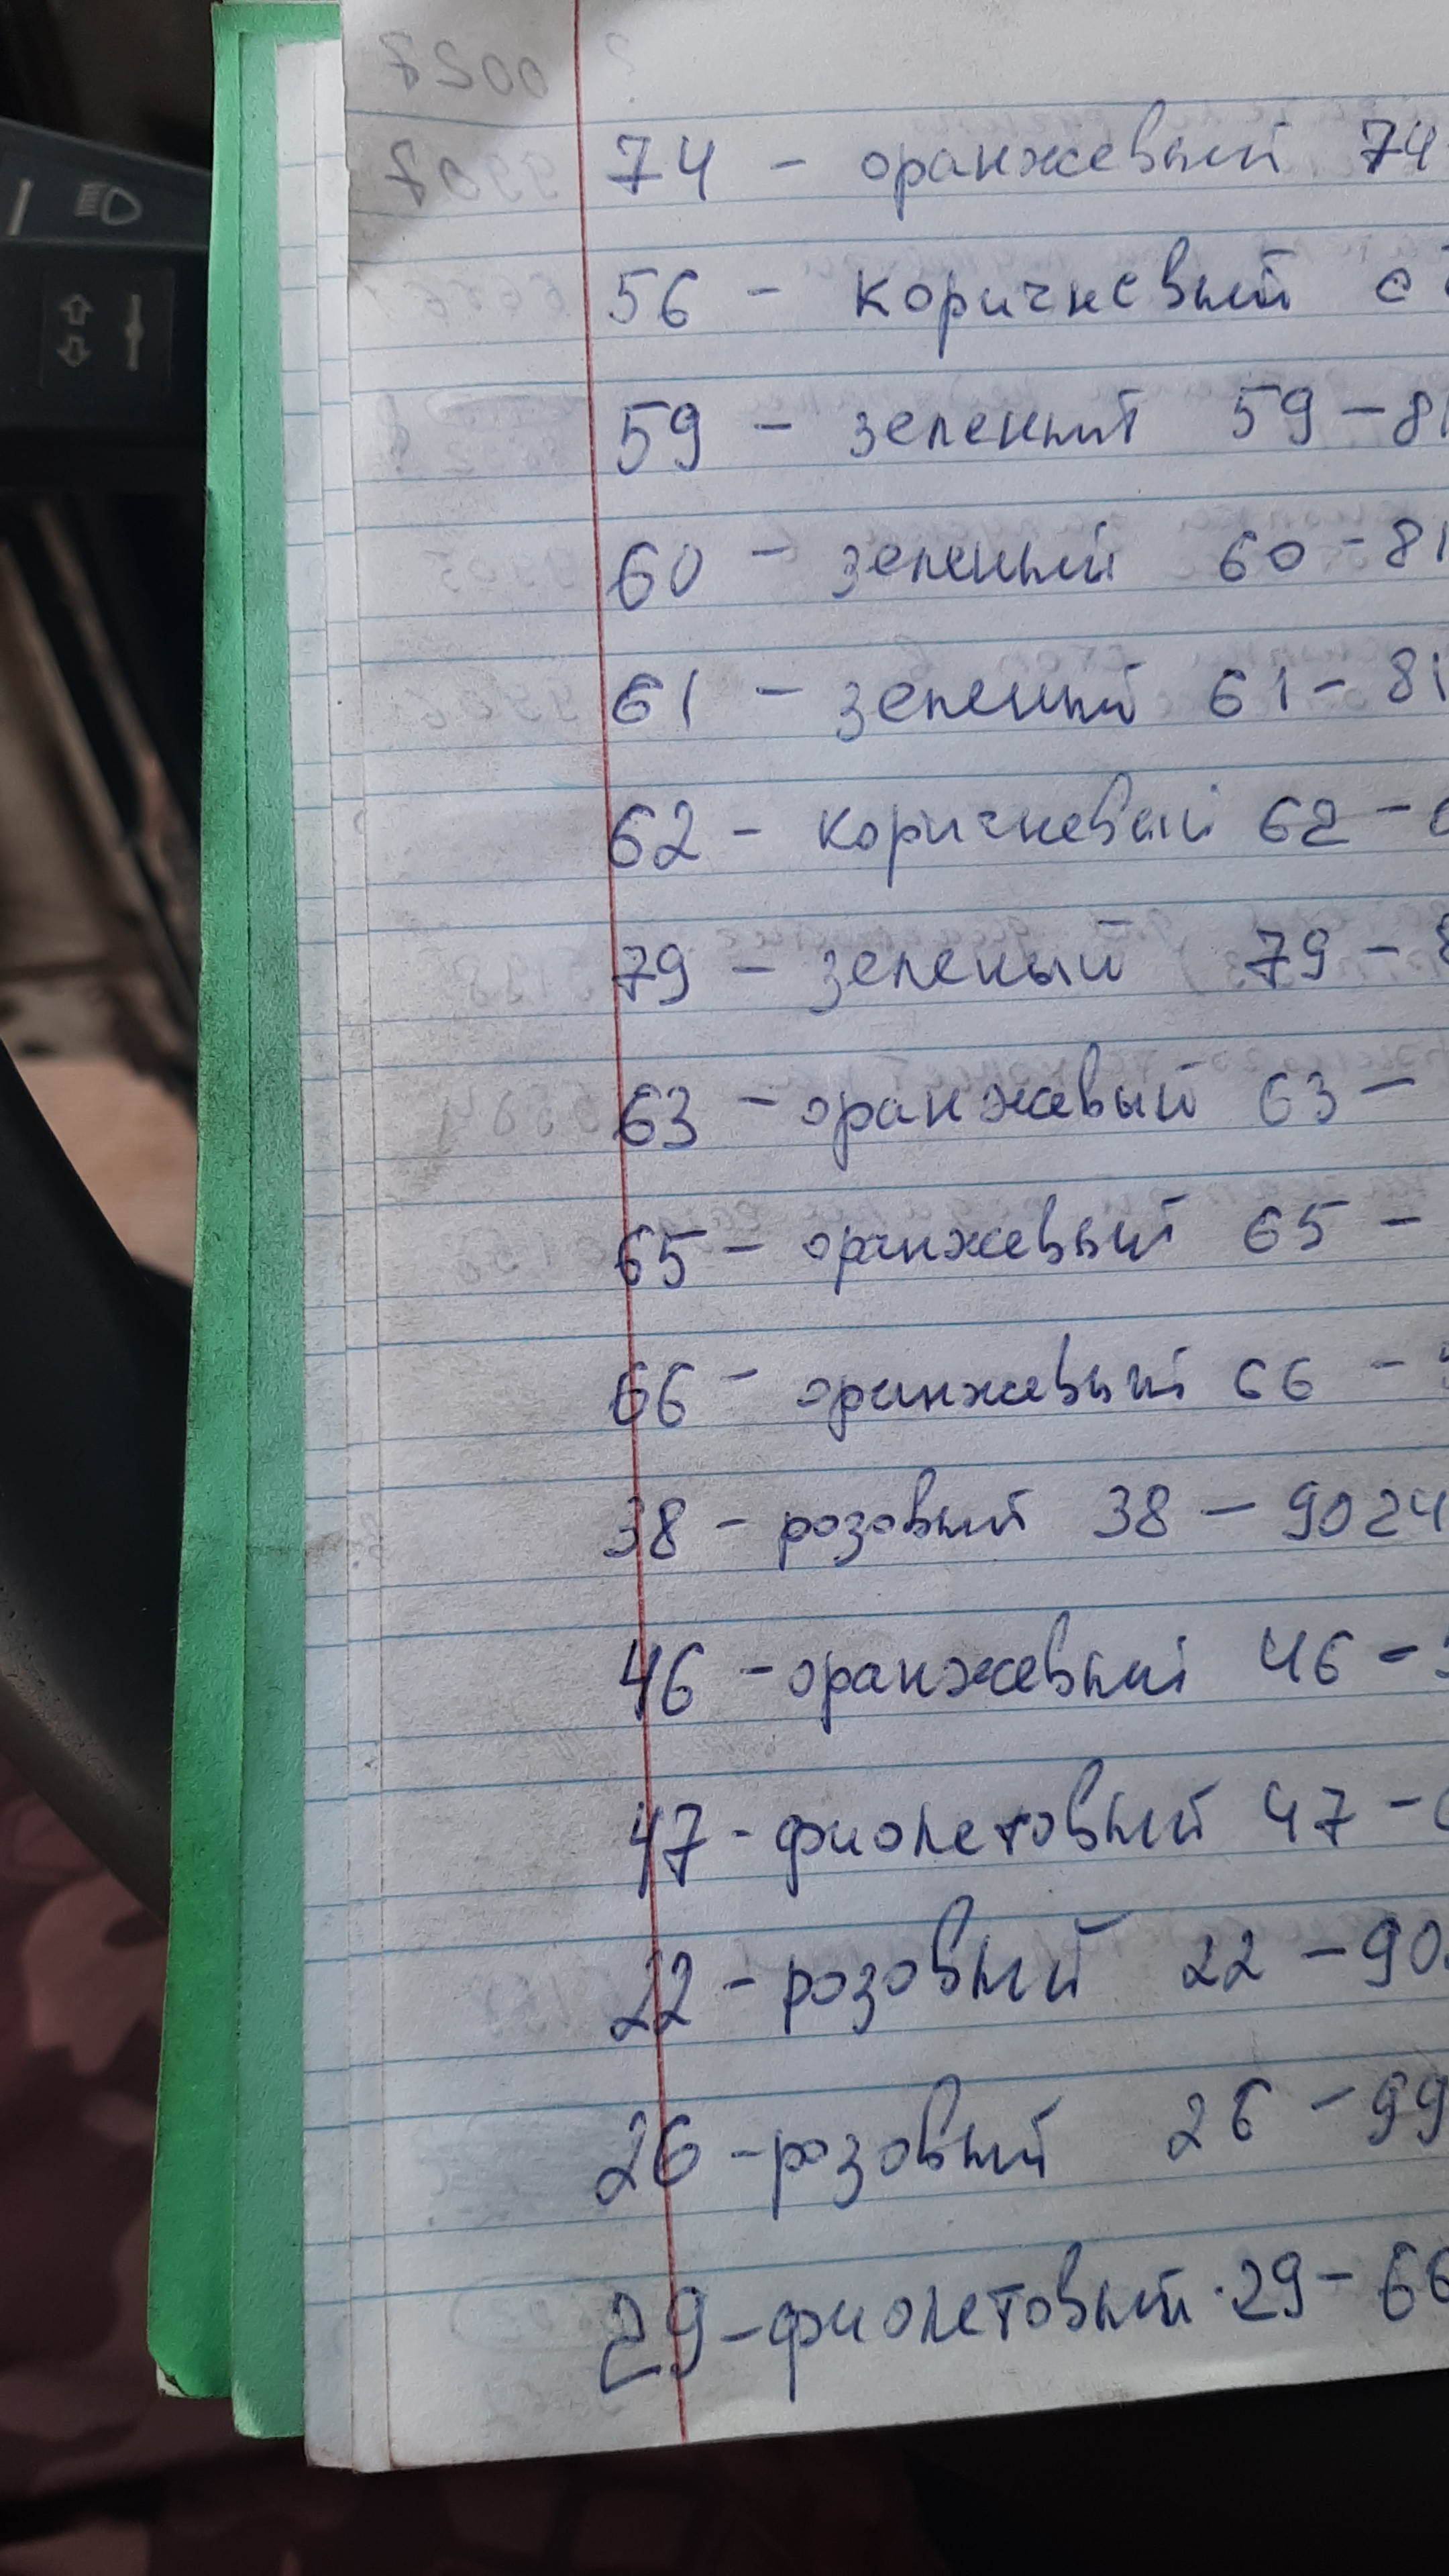 74 - оранжевый 74-
56 - коричневый
59 - зеленый 59-81
60 - зеленый 60-81
61 - зеленый 61-81
62 - коричневый 62-
79 - зеленый 79-8
63 - оранжевый 63-
65 - оранжевый 65-
66 - оранжевый 66-
38 - розовый 38-9024
46 - оранжевый 46-
47 - фиолетовый 47-
22 - розовый 22-90
26 - розовый 26-99
29 - фиолетовый 29-66